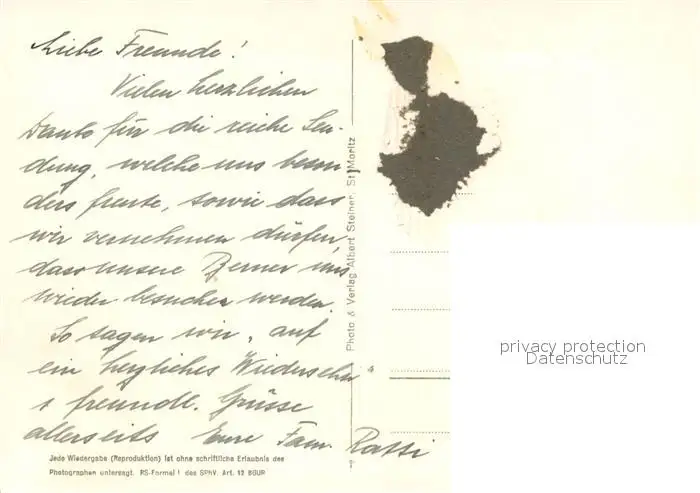 Liebe Freunde!
Vielen herzlichen
Dank für die reiche Sen-
dung, welche uns beson
ders freute, sowie dass
wir vernehmen dürfen,
dass unsere Berner uns
wieder besuchen werden.
So sagen wir „auf
ein herzliches Wiedersehn"
& freundl. Grüsse
allerseits Eure Fam. Ratti
Photo & Verlag Albert Steiner, St. Moritz
privacy protection
Datenschutz
Jede Wiedergabe (Reproduktion) ist ohne schriftliche Erlaubnis des
Photographen untersagt. RS-Formel 1 des SPhV. Art. 13 BGUR